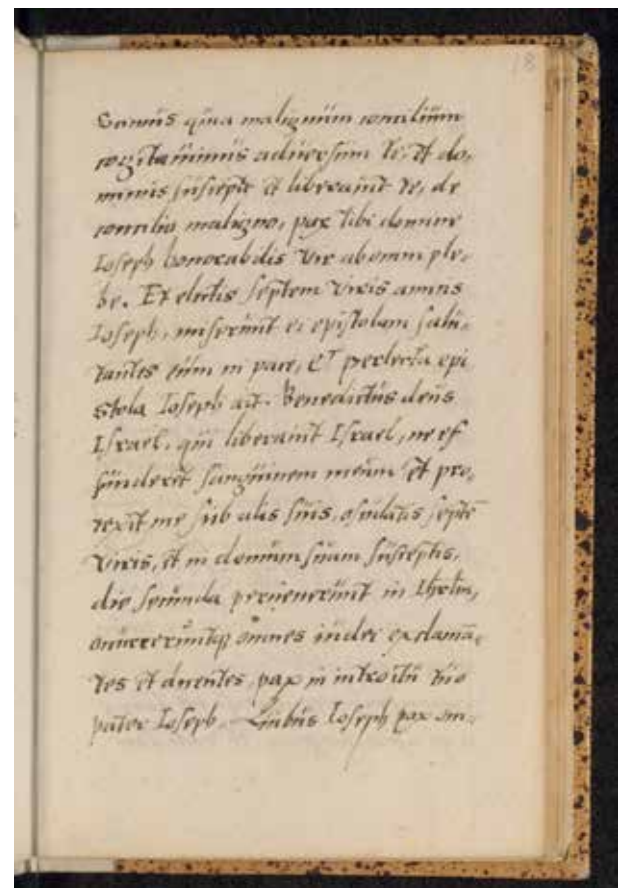 18
Scimus quia malignum consilium
cogitauimus aduersum te, et do,
minus suscepit et liberauit te, de
consilio maligno, pax tibi domine
Ioseph honorabilis vir ab omni ple,
be. Et electis septem viris amicis
Ioseph, miserunt ei epistolam salu,
tantes eum in pace, et perlecta epi
stola Ioseph ait. Benedictus deus
Israel, qui liberauit Israel, ne ef
funderet sanguinem meum et pro,
texit me sub alis suis, osculatis septē
viris, et in domum suam susceptis,
die secunda peruenerunt in Ihrlm,
occurreruntq̃ omnes iudei exclamā,
tes et dicentes, pax in introitu tuo
pater Ioseph. Quibus Ioseph pax om,